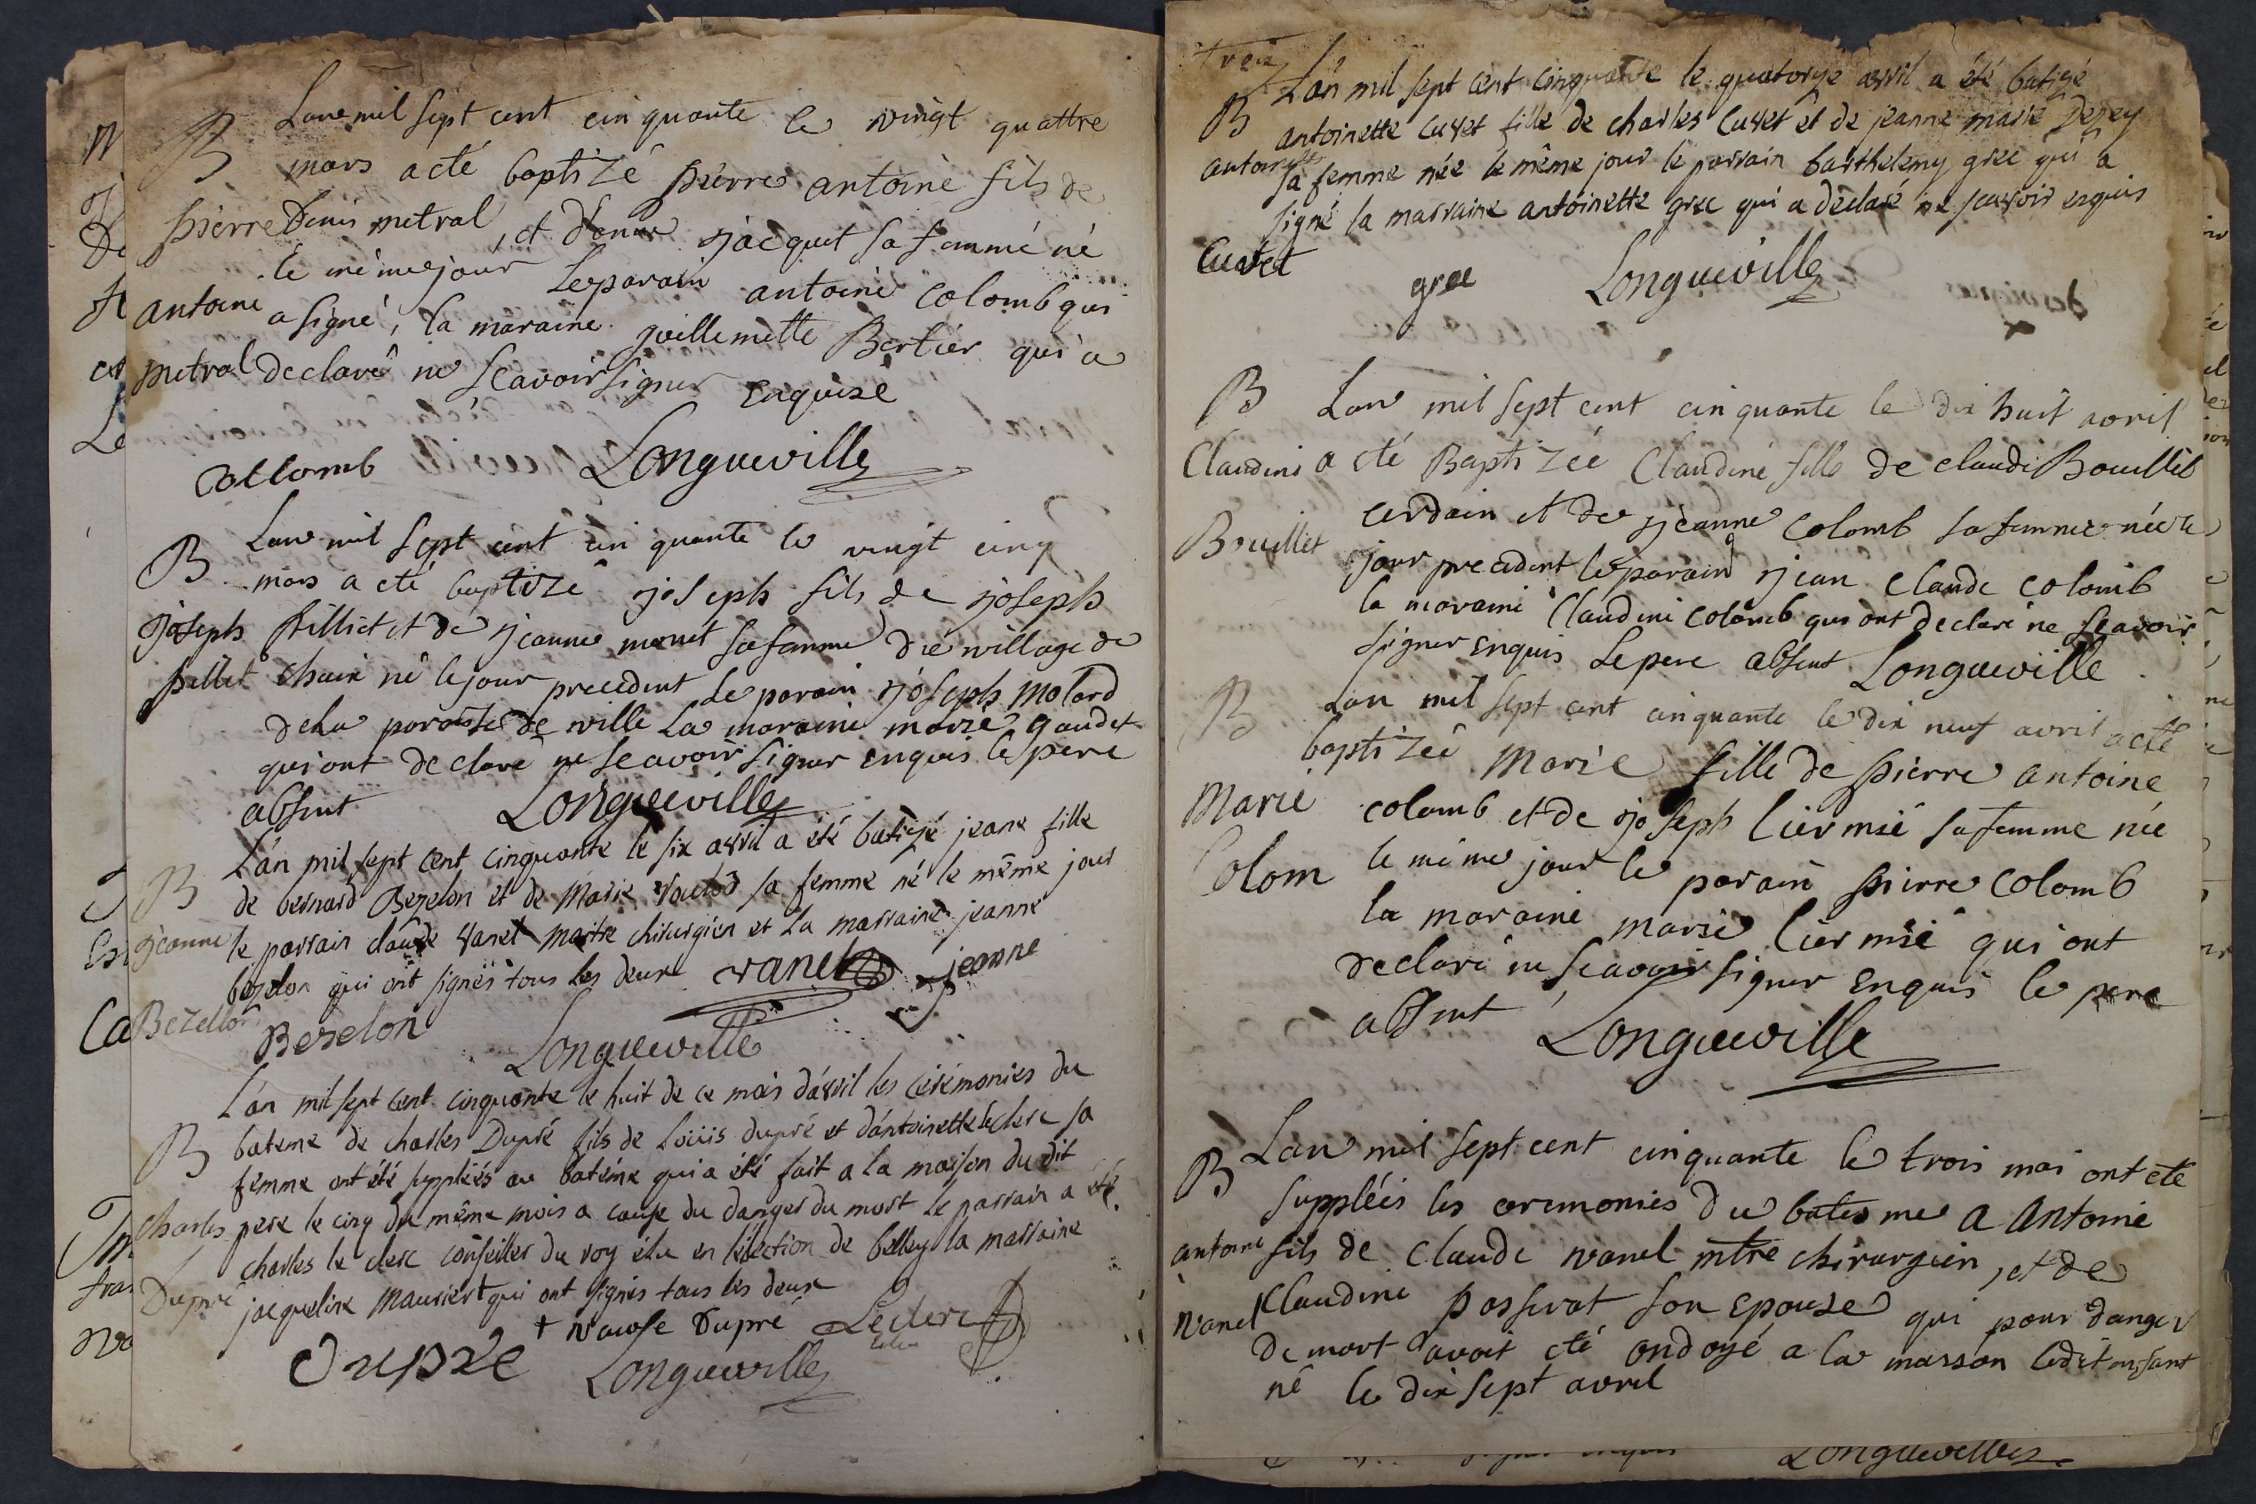 B Lan mil sept cent cinquante le vingt quattre
mars a eté baptizé pierre antoine fils de
pierre Denis metral, et d'enne jacquet sa femme né
le même jour Le parain antoine colomb qui
antoine a signé, la maraine guillemette Bertier qui a
metral declaré ne sçavoir signer enquise
collomb Longueville
B Lan mil sept cent cinquante le vingt cinq
mars a eté baptizé joseph fils de joseph
joseph pilliet et de jeanne monet sa femme du village de
pillet né le jour precedent Le parain joseph molard
de la paroisse de ville La maraine marie gaudet
qui ont declaré ne sçavoir signer enquis le pere
absent Longueville
B L'an mil sept cent cinquante le six avril a été batizé jeane fille
de bernard Bezelon et de Marie sa femme né le même jour
jeanne le parrain claude vanel maitre chirurgien et la marraine jeanne
bezelon qui ont signés tous les deux vanel jeanne
Bezellon
Bezelon Longueville
L'an mil sept cent cinquante le huit de ce mois d'avril les cérémonies du
B bateme de charles Dupré fils de Loüis dupré et d'antoinette leclerc sa
femme ont été suppléés au bateme qui a été fait a la maison du dit
charles pere le cinq du même mois a cause du danger du mort Le parrain a été
charles le clerc conseiller du roy élu en l'élection de belley la marraine
Dupré jacqueline Maurier + qui ont signés tous les deux
+ Dupré Leclerc
Dupré Longueville
trois
L'an mil sept cent cinquante le quatorze avril a été batizé
B antoinette cuvet fille de charles cuvet et de jeanne marie
antoinette sa femme née le même jour le parrain barthelemy grec qui a
signé la marraine antoinette grec qui a déclaré ne scavoir enquis
Cuvet
grec Longueville
B Lan mil sept cent cinquante le dix huit avril
Claudine a eté Baptizée Claudine fille de claude Bouillet
cerdain et de jeanne colomb sa femme née le
Bouillet jour precedent le parain jean claude colomb
la maraine Claudine colomb qui ont declaré ne sçavoir
signer enquis Le pere absent Longueville
B Lan mil sept cent cinquante le dix neuf avril a eté
baptizée Marie fille de pierre antoine
Marie colomb et de joseph liermié sa femme née
Colom le même jour le parain pierre colomb
la maraine marie liermié qui ont
declaré ne sçavoir signer enquis le pere
absent Longueville
B Lan mil sept cent cinquante le trois mai ont eté
suppléés les ceremonies du batesme a Antoine
antoine fils de claude vanel mtre chirurgien, et de
vanel Claudine passerat son epouse qui pour danger
de mort avoit eté ondoyé a la maison ledit enfant
né le dix sept avril
Longueville